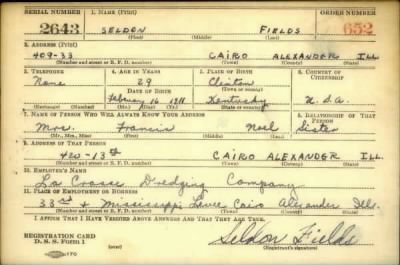 SERIAL NUMBER 1. NAME (Print) ORDER NUMBER
2643 SELDON FIELDS 652
(First) (Middle) (Last)
2. ADDRESS (Print)
409-33 CAIRO ALEXANDER ILL
(Number and street or R. F. D. number) (Town) (County) (State)
3. TELEPHONE 4. AGE IN YEARS 5. PLACE OF BIRTH 6. COUNTRY OF CITIZENSHIP
None 29 Cleaton
DATE OF BIRTH (Town or county)
February 16 1911 Kentucky U.S.A.
(Mo.) (Day) (Yr.) (State or country)
7. NAME OF PERSON WHO WILL ALWAYS KNOW YOUR ADDRESS 8. RELATIONSHIP OF THAT PERSON
Mrs. Francis Noel Sister
(Mr., Mrs., Miss) (First) (Middle) (Last)
9. ADDRESS OF THAT PERSON
420-13th CAIRO ALEXANDER ILL.
(Number and street or R. F. D. number) (Town) (County) (State)
10. EMPLOYER'S NAME
La Crosse Dredging Company
11. PLACE OF EMPLOYMENT OR BUSINESS
33rd & Mississippi Levee Cairo Alexander Ills.
(Number and street or R. F. D. number) (Town) (County) (State)
I AFFIRM THAT I HAVE VERIFIED ABOVE ANSWERS AND THAT THEY ARE TRUE.
REGISTRATION CARD
D. S. S. Form 1 (over) Seldon Fields
(Registrant's signature)